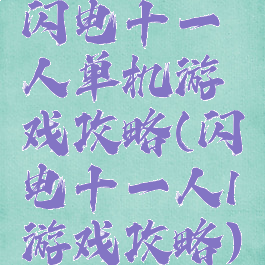 闪电十一
人单机游
戏攻略(闪
电十一人l
游戏攻略)